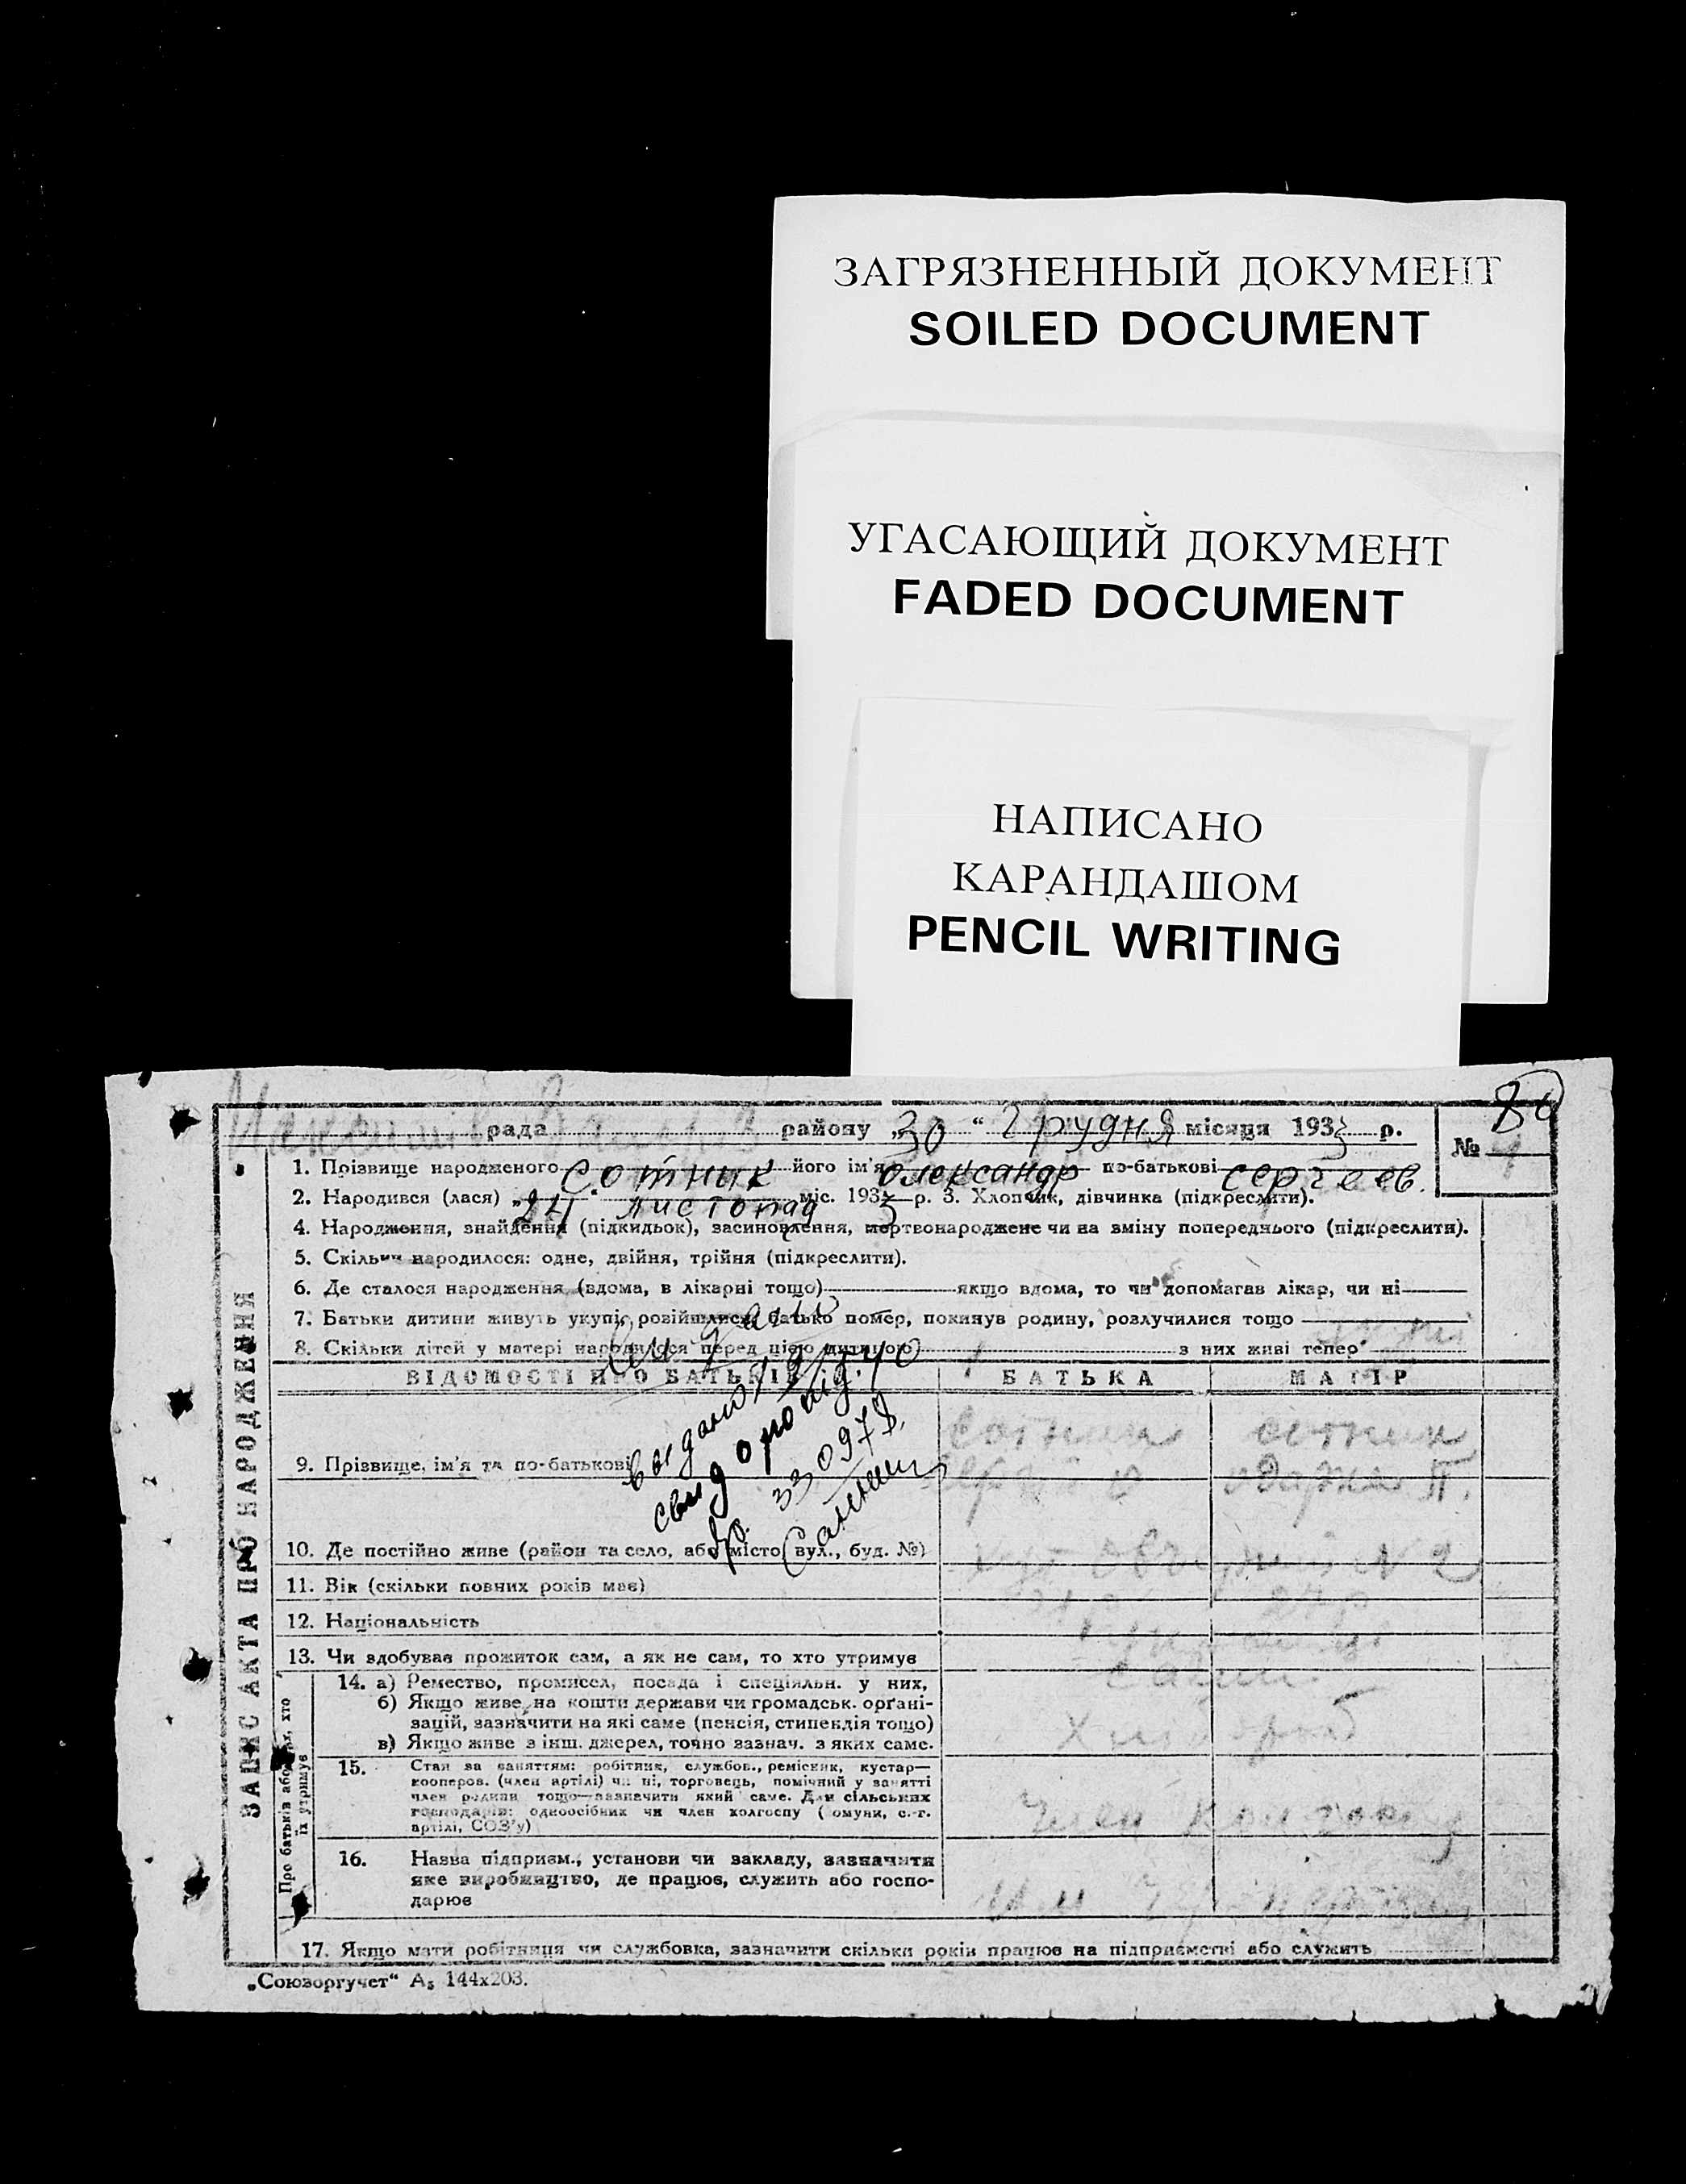 ЗАГРЯЗНЕННЫЙ ДОКУМЕНТ
SOILED DOCUMENT
УГАСАЮЩИЙ ДОКУМЕНТ
FADED DOCUMENT
НАПИСАНО
КАРАНДАШОМ
PENCIL WRITING
80
рада району „30“ Грудня місяця 1933 р.
№
1. Прізвище народженого Сотник його ім'я Олександр по-батькові Сергеев.
2. Народився (лася) „24“ листопад міс. 1933 р. 3. Хлопчик, дівчинка (підкреслити).
4. Народження, знайдення (підкидьок), засиновлення, мертвонароджене чи на зміну попереднього (підкреслити).
5. Скільки народилося: одне, двійня, трійня (підкреслити).
6. Де сталося народження (вдома, в лікарні тощо) якщо вдома, то чи допомагав лікар, чи ні
7. Батьки дитини живуть укупі, розійшлися, батько помер, покинув родину, розлучилися тощо
8. Скільки дітей у матері народилося перед цією дитиною) з них живі тепер
ВІДОМОСТІ ПРО БАТЬКІВ БАТЬКА МАТІР
9. Прізвище, ім'я та по-батькові
Сотник
330978
10. Де постійно живе (район та село, або місто, вул., буд. №)
11. Вік (скільки повних років має)
12. Національність
13. Чи здобував прожиток сам, а як не сам, то хто утримує
14. а) Ремество, промисел, посада і спеціяльн. у них,
б) Якщо живе на кошти держави чи громадськ. орґані-
зацій, зазначити на які саме (пенсія, стипендія тощо)
в) Якщо живе з інш. джерел, точно зазнач. з яких саме.
Хлібороб
15. Стан за заняттям: робітник, службов., ремісник, кустар—
кооперов. (член артілі) чи ні, торговець, помічний у занятті
член родини тощо—зазначити який саме. Для сільських
господарів: одноосібник чи член колгоспу (комуни, с.-г.
артілі, СОЗ'у)
Член колгоспу
16. Назва підприєм., установи чи закладу, зазначити
яке виробництво, де працює, служить або госпо-
дарює
17. Якщо мати робітниця чи службовка, зазначити скільки років працює на підприємстві або служить
„Союзоргучет“ А₅ 144х203.
ЗАПИС АКТА ПРО НАРОДЖЕННЯ
Про батьків або тих, хто
їх утримує